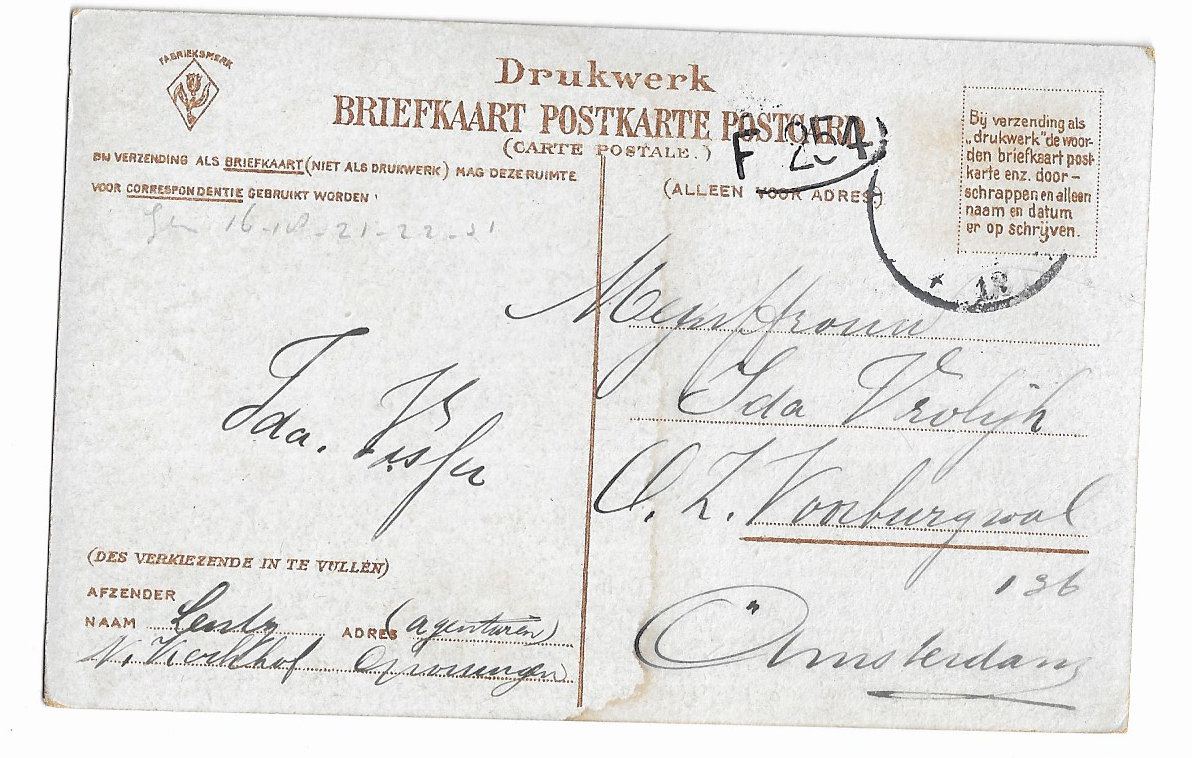 FABRIEKSMERK
Drukwerk
BRIEFKAART POSTKARTE POSTCARD
(CARTE POSTALE.)
F 254
BIJ VERZENDING ALS BRIEFKAART (NIET ALS DRUKWERK) MAG DEZE RUIMTE
VOOR CORRESPONDENTIE GEBRUIKT WORDEN
(ALLEEN VOOR ADRES)
Bij verzending als
„drukwerk" de woor-
den briefkaart post-
karte enz. door-
schrappen en alleen
naam en datum
er op schrijven.
16-18-21-22-
* 12
Ida. Visser
Mejuffrouw
Ida Vrolijk
O. Z. Voorburgwal
136
Amsterdam
(DES VERKIEZENDE IN TE VULLEN)
AFZENDER
NAAM Lentz ADRES (agenturen)
N. Kerkhof Groningen